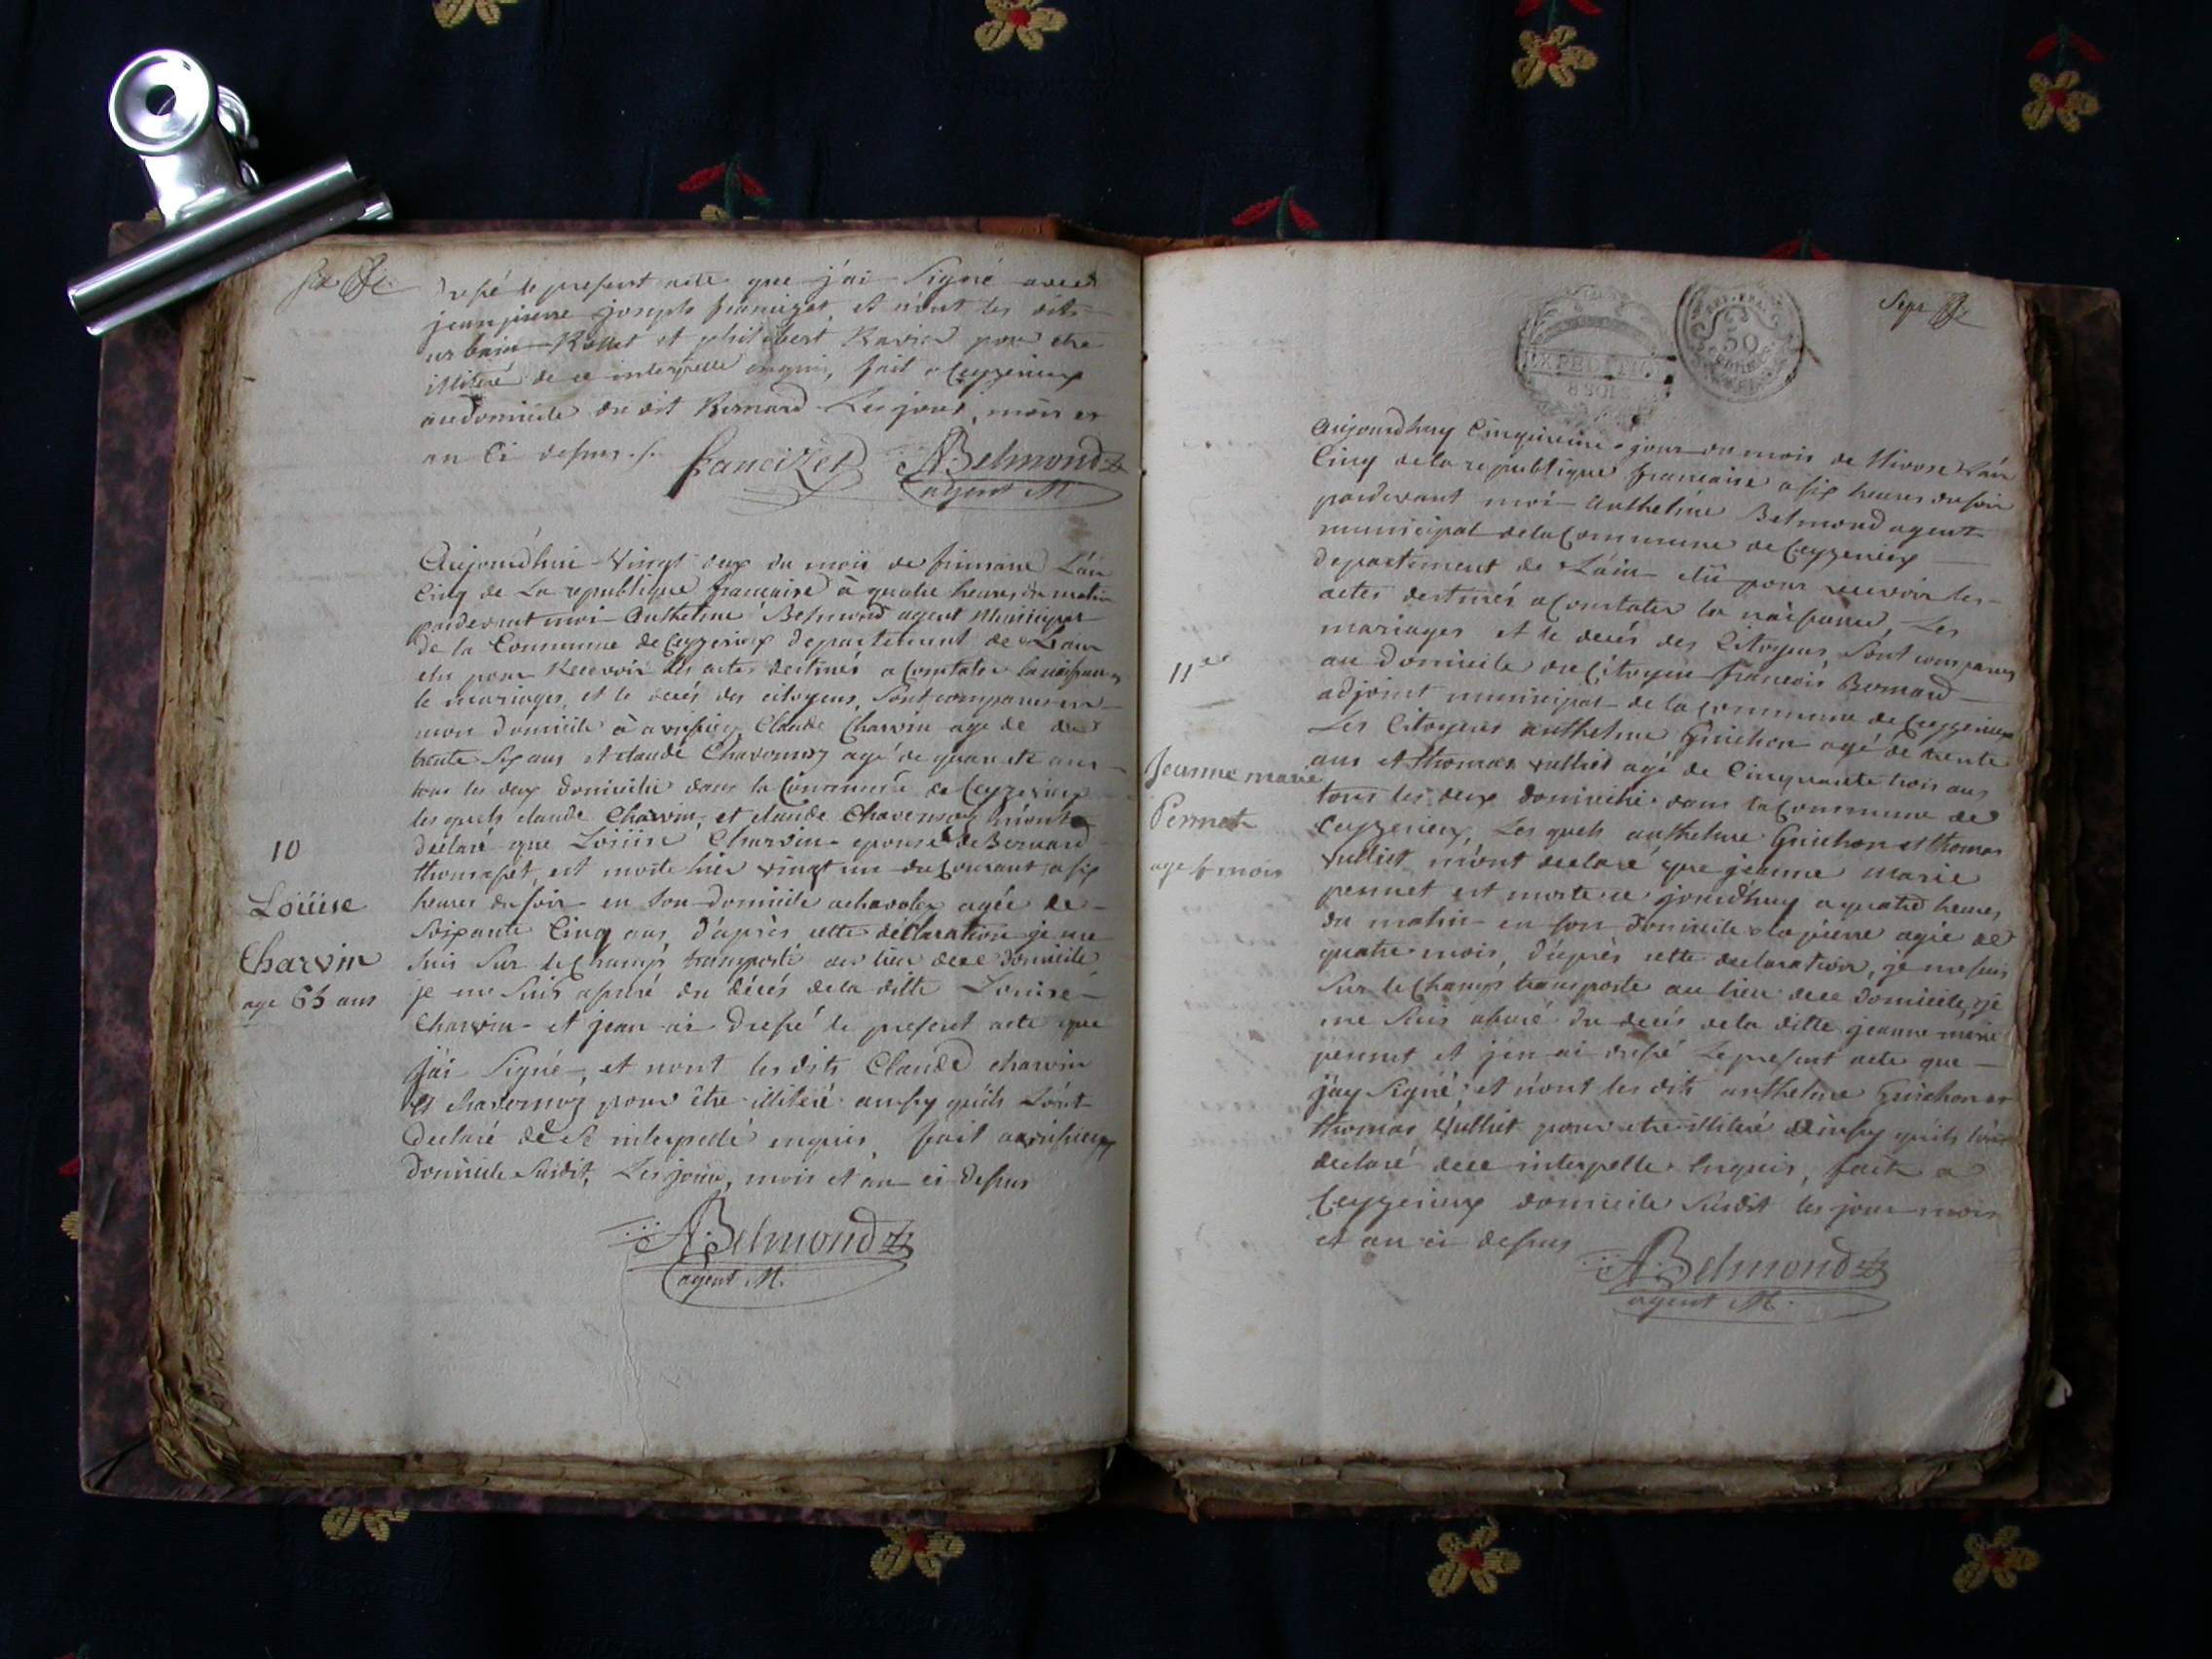 six
Dressé le present acte que j'ai Signé avec
jean pierre joseph francizet, et n'ont les dits
urbain Rollet et philibert Ravier pour etre
illiteré de ce interpellé enquis, fait a Ceyzerieux
au domicile du dit Bernard Les jour, mois et
an Ci dessus ./.
francizet ABelmond
agent M
Aujourd'hui Vingt deux du mois de frimaire L'an
Cinq de La republique francaise à quatre heures du matin
pardevant moi Anthelme Belmond agent Municipal
de la Commune de Ceyzerieux departement de L'ain
elu pour Recevoir les actes destinés a Constater la naissance
le mariages, et le decés des citoyens, sont comparus en
mon domicile à avrissieu Claude Charvin agé de
trente Six ans et claude Chavornoz agé de quarante ans
tous les deux Domicilié dans la Commune de Ceyzerieux
les quels claude Charvin, et claude Chavornoz m'ont
declaré que Loüise Charvin epouse de Bernard
thomasset, est morte hier vingt un du Courant a six
heures du soir en son domicile a chavoley agée de
Soixante Cinq ans D'après cette déclaration je me
suis Sur le Champ transporté au lieu de ce domicile
je me Suis assuré du décés de la ditte Louise
Charvin et j'ean ai Dressé le present acte que
j'ai Signé, et nont les dits Claude charvin
et chavornoz pour être illiteré aussy qu'ils L'ont
Declaré de Ce interpellé enquis, fait a avrissieux
Domicile Susdit, Les jour, mois et an ci dessus
ABelmond
agent M.
10
Loüise
Charvin
age 65 ans
Sept
EXPEDITION
50
Aujourdhuy Cinquieme jour du mois de Nivose L'an
Cinq de la republique francaise a six heures du soir
pardevant moi Anthelme Belmond agent
municipal de la Commune de Ceyzerieux
departement de L'ain elü pour recevoir les
actes destinés a Constater la naissance, Les
mariages et le decés des Citoyens, Sont comparus
au Domicile du Citoyen francois Bernard
adjoint municipal de la Commune de Ceyzerieux
Les Citoyens anthelme Guichon agé de trente
ans et thomas vulliet agé de Cinquante trois ans
tous les deux domicilié dans la Commune de
Ceyzerieux, Les quels anthelme Guichon et thomas
Vulliet m'ont declaré que jeanne marie
pennet est morte ce jourd'huy a quatre heures
du matin en son domicile a la pierre agée de
quatre mois, D'après cette declaration, je me suis
sur le Champ transporte au lieu de ce Domicile, je
me Suis assuré du decés de la ditte jeanne marie
pennet et j'en ai dressé le present acte que
j'ay Signé, et n'ont les dits anthelme Guichon et
thomas Vulliet pour etre illiteré ainssy qu'ils l'ont
declaré de ce interpelle Enquis, fait a
Ceyzerieux domicile susdit les jour mois
et an ci dessus
ABelmond
agent M.
11
Jeanne marie
Pennet
age 4 mois